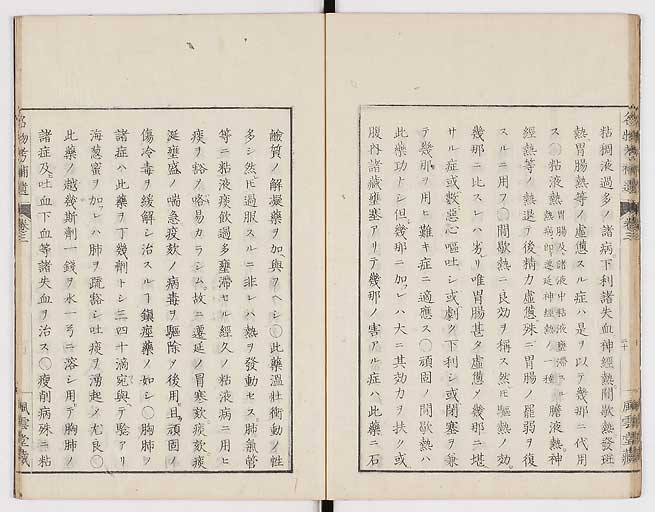 粘稠液過多ノ諸病下利諸失血神經熱間歇熱發斑
熱胃腸熱等ノ虛憊スル症ハ是ヲ以テ幾那ニ代用
ス〇粘液熱
胃腸及諸液中粘液壅滯
熱病即遷延神經熱ノ一種
膽液熱神
經熱等ノ熱退テ後精力虛憊殊ニ胃腸ノ罷弱ヲ復
スルニ用フ〇間歇熱ニ良効ヲ稱ス然㆑驅熱ノ効
幾那ニ比スレハ劣リ唯胃腸甚タ虛憊メ幾那ニ堪
サル症或ハ數惡心嘔吐シ或ハ劇ク下利シ或ハ閉塞ヲ兼
テ幾那ヲ用ヒ難キ症ニ適應ス〇頑固ノ間歇熱ハ
此藥功トシ但幾那ニ加フレハ大ニ其効力ヲ扶ク或
腹內諸藏壅塞アリテ幾那ノ害アル症ハ此藥ニ石
鹼質ノ解凝藥ヲ加ヘ與フヘシ〇此藥溫壯衝動ノ性
多シ然㆑過服スルニ非レハ熱ヲ發動セス肺氣管
等ニ粘液痰飮過多壅滯セル經久ノ粘液病ニ用ヒ
痰ヲ豁メ咯易カラシム故ニ遷延ノ冒寒欬痰欬痰
涎壅盛ノ喘急痰欬ノ病毒ヲ驅除メ後用且頑固ノ
傷冷毒ヲ緩解シ治スルヿ鎭痙藥ノ如シ〇胸肺ヲ
諸症ハ此藥ヲ丁幾劑トシ三四十滴宛與テ驗アリ
海葱蜜ヲ加フレハ肺ヲ疏豁シ吐痰ヲ湧起メ尤良〇
此藥ノ越幾斯劑一錢ヲ水一ニ溶シ用テ胸肺ノ
諸症及吐血下血等諸失血ヲ治ス〇瘦削病殊ニ粘
名物考補遺
卷三
風雲堂藏